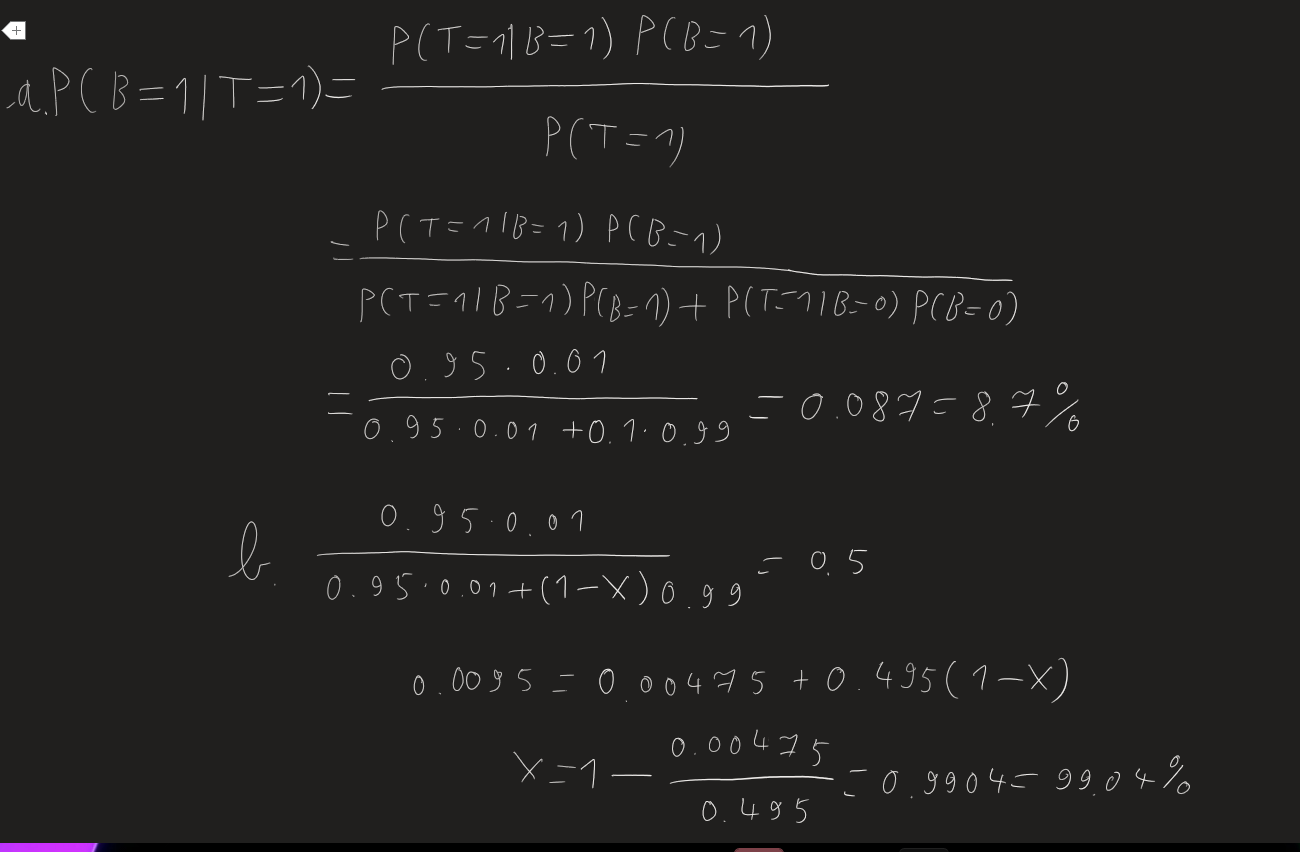 a. P(B=1|T=1) = P(T=1|B=1) P(B=1) / P(T=1)
= P(T=1|B=1) P(B=1) / P(T=1|B=1) P(B=1) + P(T=1|B=0) P(B=0)
= 0.95 · 0.01 / 0.95 · 0.01 + 0.1 · 0.99 = 0.087 = 8.7%
b. 0.95 · 0.01 / 0.95 · 0.01 + (1-X) 0.99 = 0.5
0.0095 = 0.00475 + 0.495(1-X)
X = 1 - 0.00475 / 0.495 = 0.9904 = 99.04%